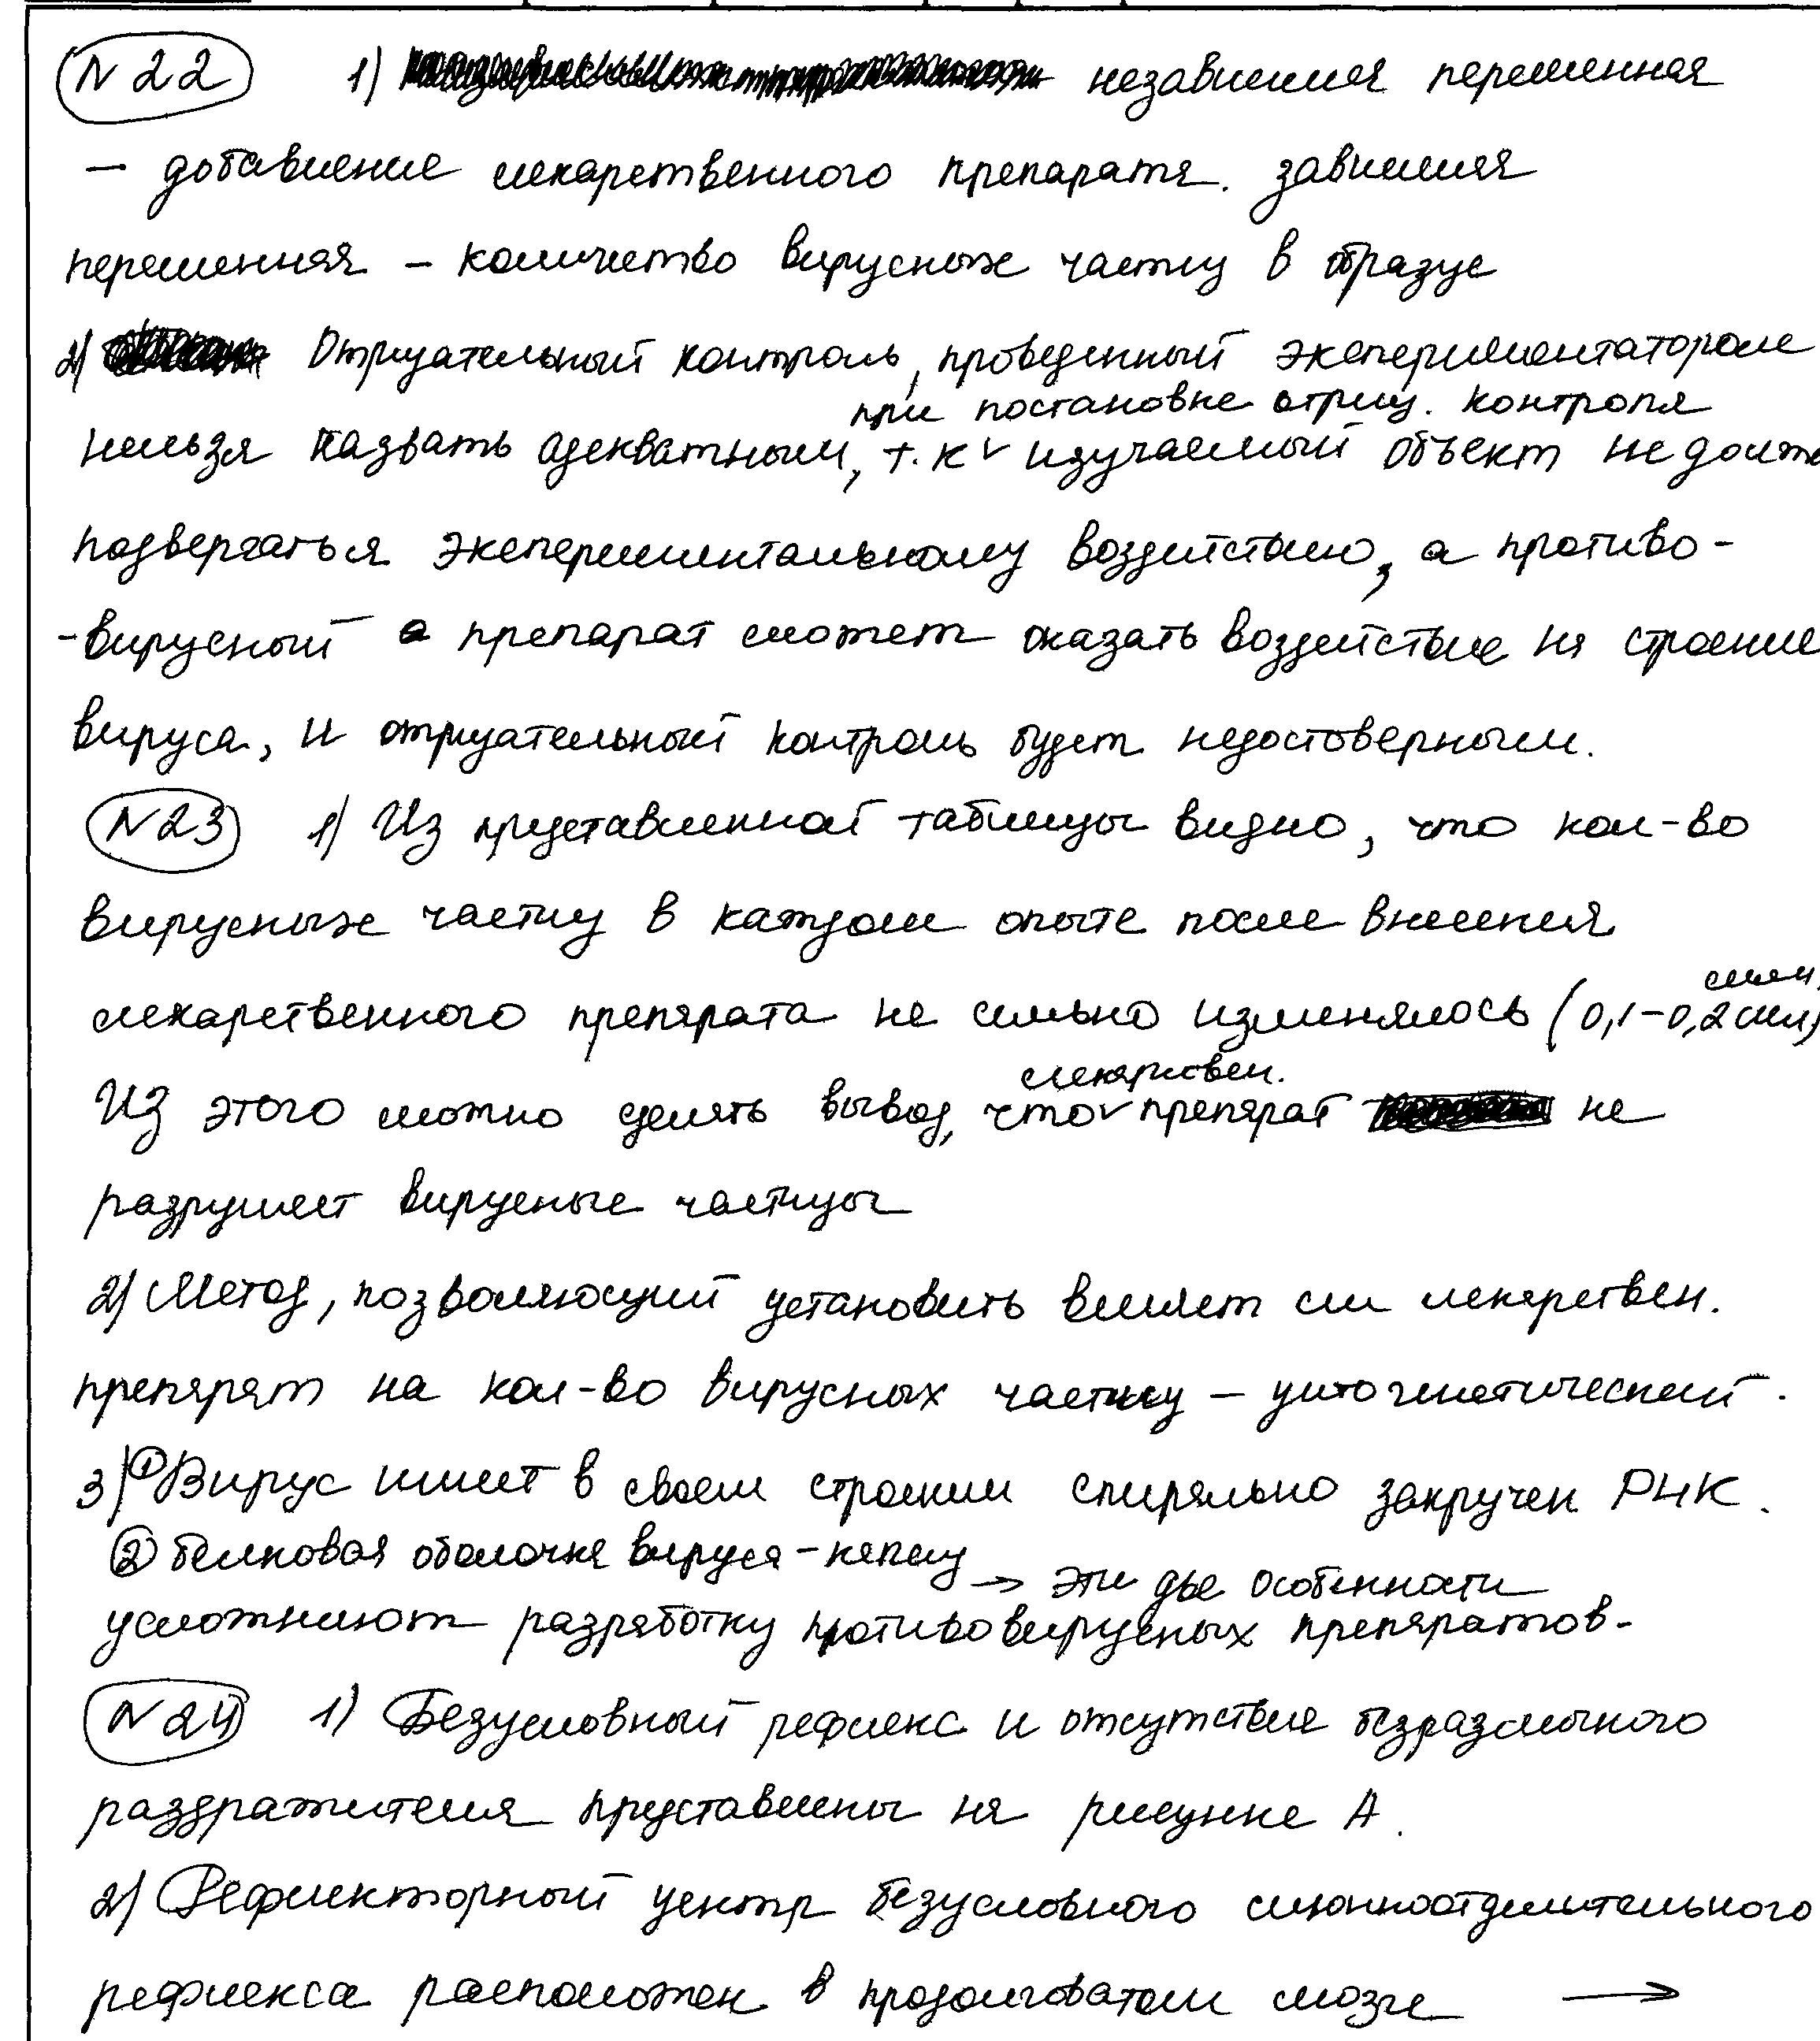 N 22 1) независимая переменная
— добавление лекарственного препарата. зависимая
переменная – количество вирусных частиц в образце
2) Отрицательный контроль, проведенный экспериментатором
при постановке отриц. контроля
нельзя назвать адекватным, т.к изучаемый объект не долж
подвергаться экспериментальному воздействию, а противо-
-вирусный препарат может оказать воздействие на строение
вируса, и отрицательный контроль будет недостоверным.
N 23 1) Из представленной таблицы видно, что кол-во
вирусных частиц в каждом опыте после внесения
лекарственного препарата не сильно изменялось (0,1–0,2 млн)
Из этого можно сделать вывод, что лекарствен. препарат не
разрушает вирусные частицы
2) Метод, позволяющий установить влияет ли лекарствен.
препарат на кол-во вирусных частиц – цитогенетический.
3) ① Вирус имеет в своем строении спирально закручен РНК.
② белковая оболочка вируса – капсид
→ эти две особенности
усложняют разработку противовирусных препаратов.
N 24 1) Безусловный рефлекс и отсутствие безразличного
раздражителя представлены на рисунке А.
2) Рефлекторный центр безусловного слюноотделительного
рефлекса расположен в продолговатом мозге →